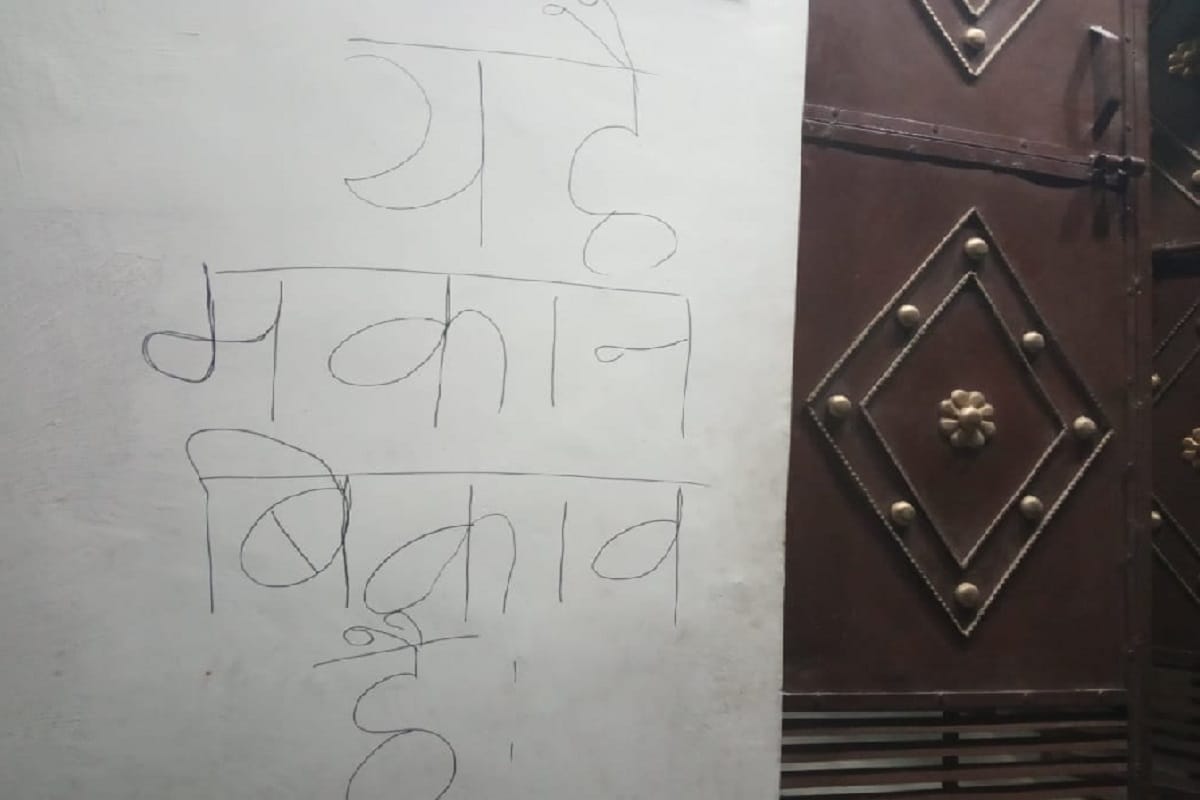 यहै
मकान
बिकाव
है :